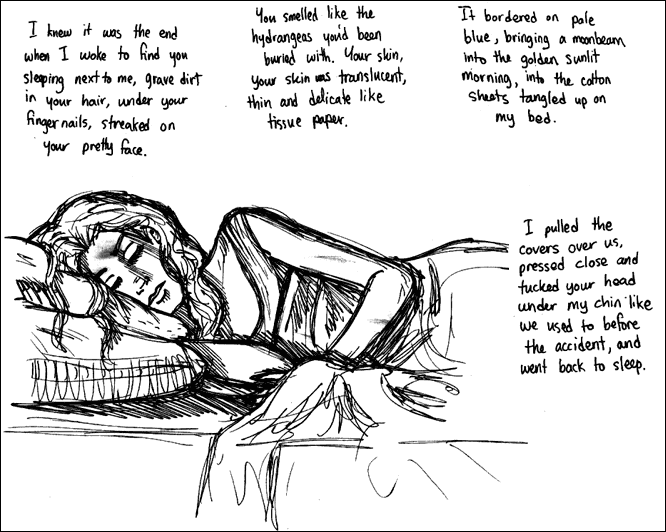 I knew it was the end
when I woke to find you
sleeping next to me, grave dirt
in your hair, under your
fingernails, streaked on
your pretty face.
You smelled like the
hydrangeas you'd been
buried with. Your skin,
your skin was translucent,
thin and delicate like
tissue paper.
It bordered on pale
blue, bringing a moonbeam
into the golden sunlit
morning, into the cotton
sheets tangled up on
my bed.
I pulled the
covers over us,
pressed close and
tucked your head
under my chin like
we used to before
the accident, and
went back to sleep.